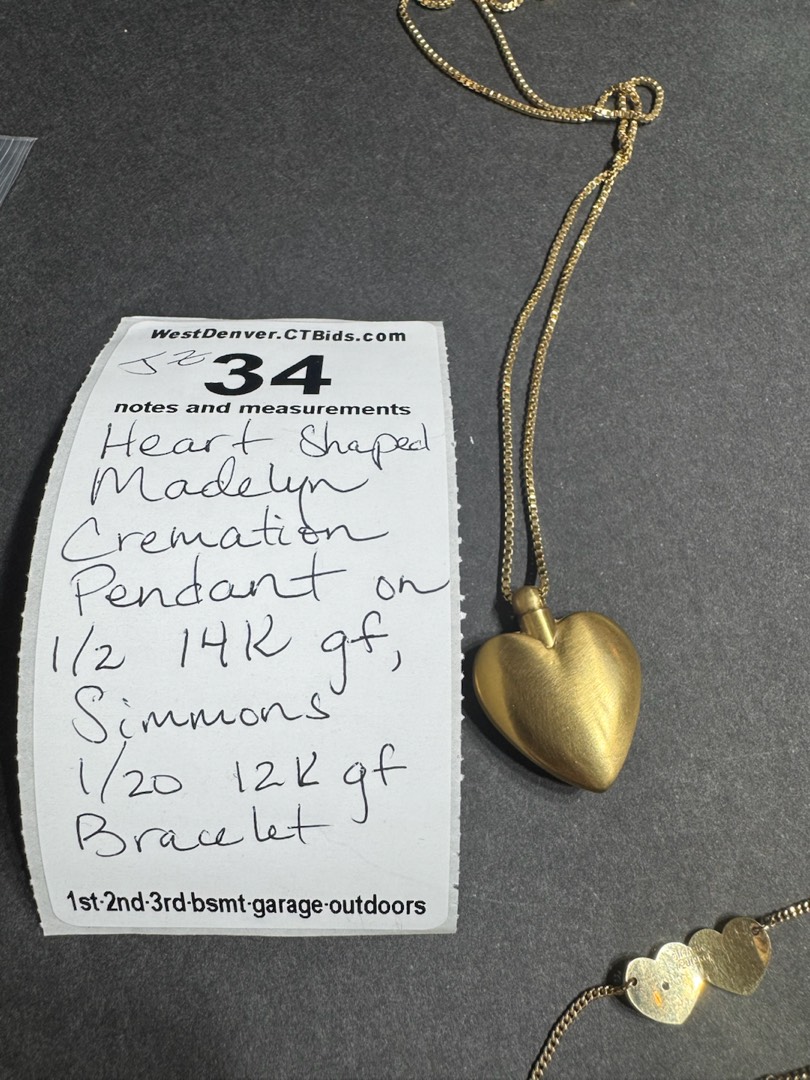 WestDenver.CTBids.com
34
notes and measurements
Heart Shaped
Madelyn
Cremation
Pendant on
1/2 14K gf,
Simmons
1/20 12K gf
Bracelet
1st·2nd·3rd·bsmt·garage·outdoors